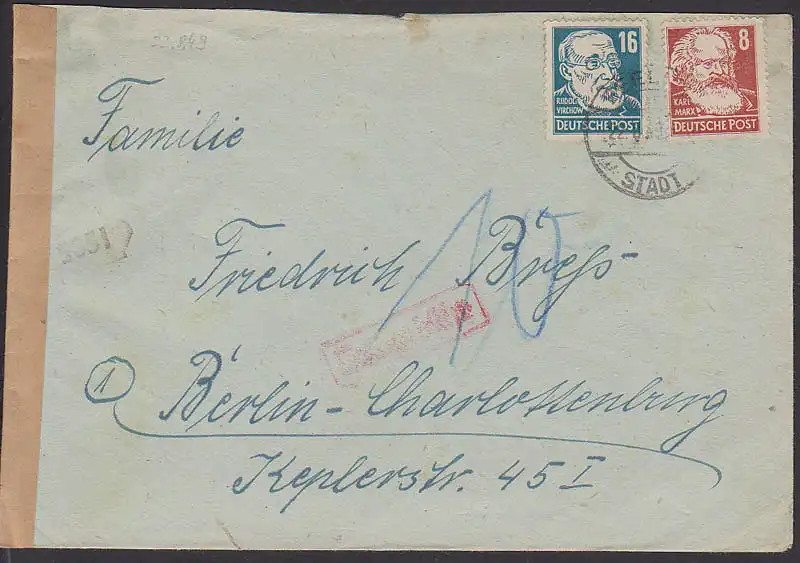 22.8.49
16
RUDOLF
VIRCHOW
DEUTSCHE POST
8
KARL
MARX
DEUTSCHE POST
STADT
Familie
Friedrich Breß-
1
Berlin-Charlottenburg
Keplerstr. 45 I